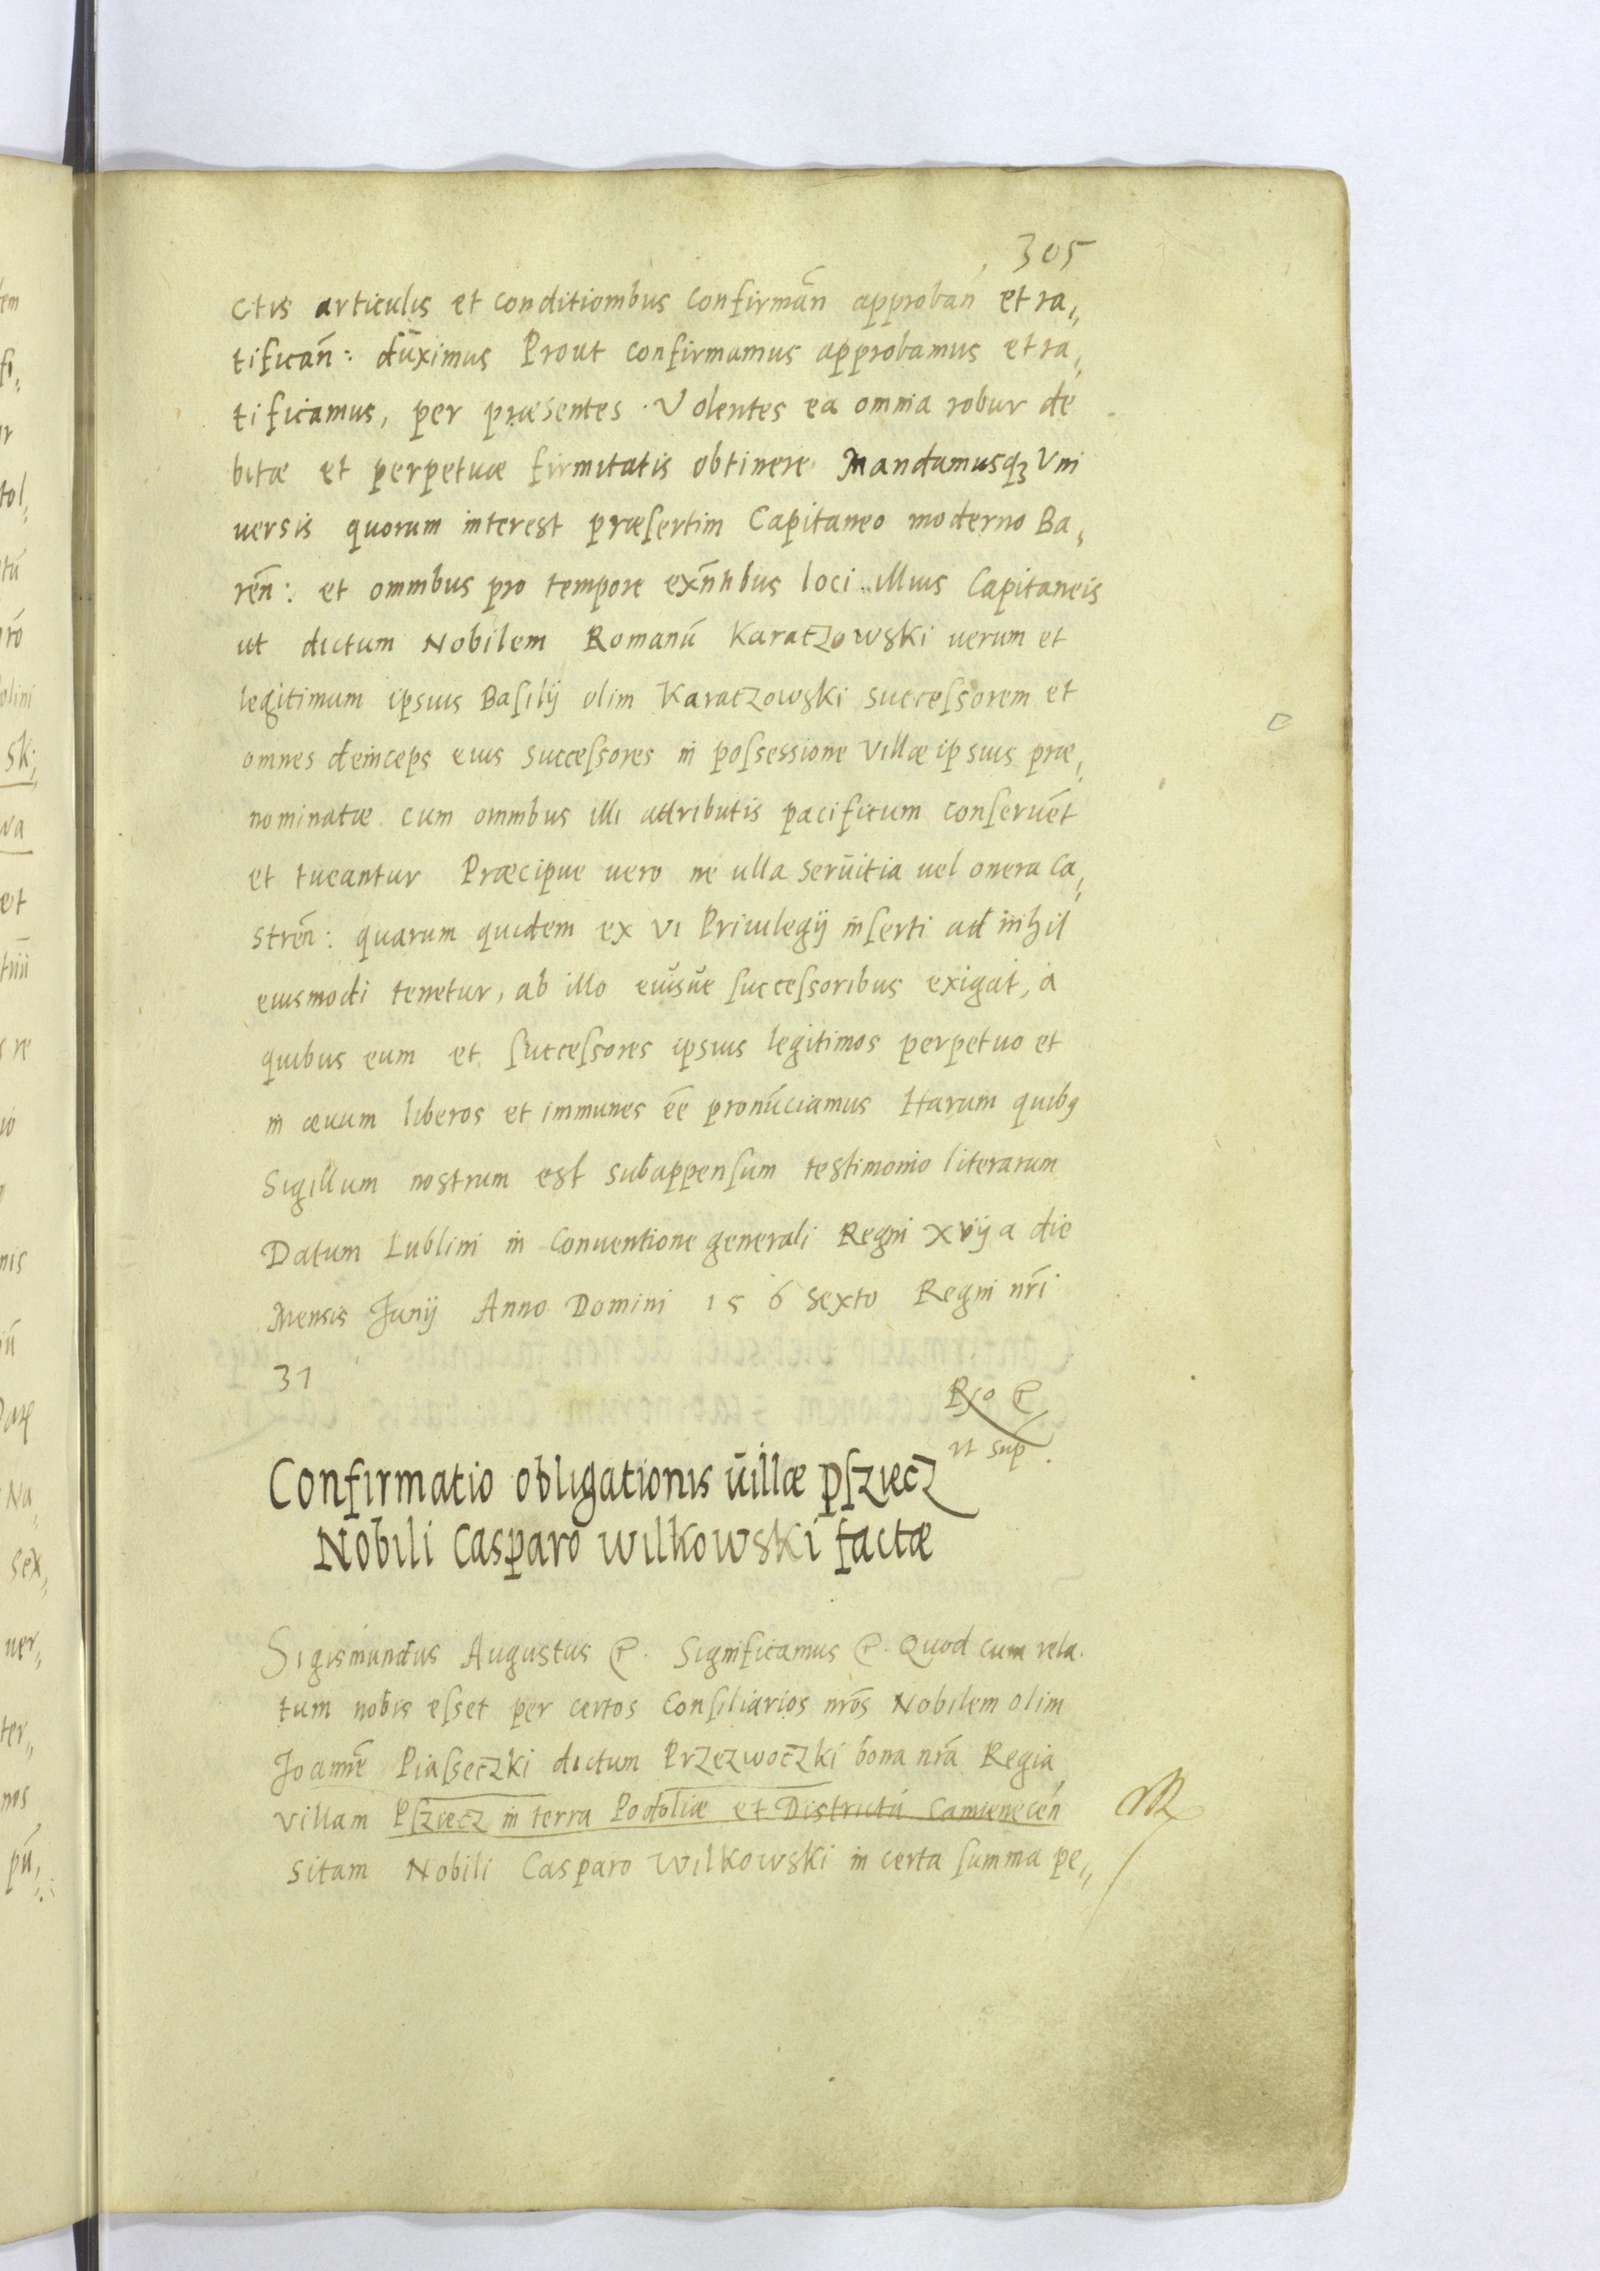 305
ctis articulis et conditionibus confirmañ approbañ et ra„
tificañ: duximus Prout confirmamus approbamus et ra„
tificamus, per præsentes. Volentes ea omnia robur de
bitæ et perpetuæ firmitatis obtinere Mandamusqꝫ Vni
uersis quorum interest præſertim Capitaneo moderno Ba„
reñ: et omnibus pro tempore exñtibus loci illius Capitaneis
ut dictum Nobilem Romanū Karaczowski uerum et
legitimum ipsius Baſilij olim Karaczowski Succeſsorem et
omnes deinceps eius Succeſsores in poſsessione Villæ ipsius præ„
nominatæ cum omnibus illi attributis pacificum conſeruēt
et tueantur Præcipue uero ne ulla seruitia uel onera Ca„
streñ: quarum quidem ex vi Priuilegij inſerti ad nihil
eiusmodi tenetur, ab illo eiusue ſucceſsoribus exigat, a
quibus eum et ſucceſsores ipsius legitimos perpetuo et
in æuum liberos et immunes ēe pronūciamus Harum quibꝯ
Sigillum nostrum est subappenſum testimonio literarum
Datum Lublini in Conuentione generali Regni xvij a die
Mensis Junij Anno Domini 156 sexto Regni nr̄i
37
ut sup
Confirmatio obligationis uillæ pſziecz
Nobili Casparo wilkowski factæ
Sigismundus Augustus ꝛc. Significamus ꝛc. Quod cum rela„
tum nobis eſset per certos Conſiliarios nr̄os Nobilem olim
Joannē Piaſseczki dictum Przezwoczki bona nr̄a Regia
villam Pſziecz in terra Podoliæ et Districtu Camenecen̄
sitam Nobili Casparo Wilkowski in certa ſumma pe„